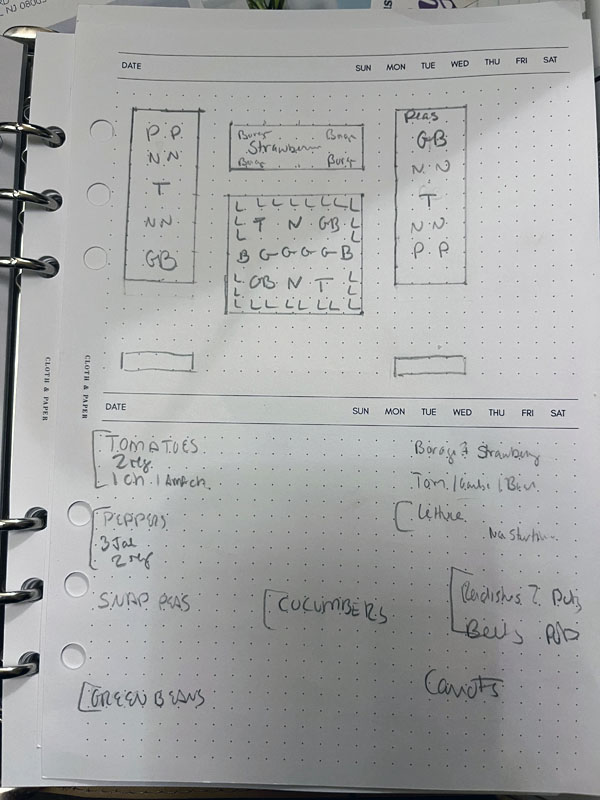 NJ 08003
DATE SUN MON TUE WED THU FRI SAT
P P
N N
T
N N
GB
Borag Borage
Strawberry
Borg Borg
L L L L L L L
L T N GB L
L L
B G G G G B
L GB N T L
L L
L L L L L L
Peas
GB
N N
T
N N
P P
CLOTH & PAPER
CLOTH & PAPER
DATE SUN MON TUE WED THU FRI SAT
TOMATOES
2 reg.
1 Ch.
PEPPERS
3 Jal
2 reg
SNAP PEAS
GREEN BEANS
CUCUMBERS
Borage & Strawberry
Tom.
Lettuce
Nasturtium
Radishes?
Carrots